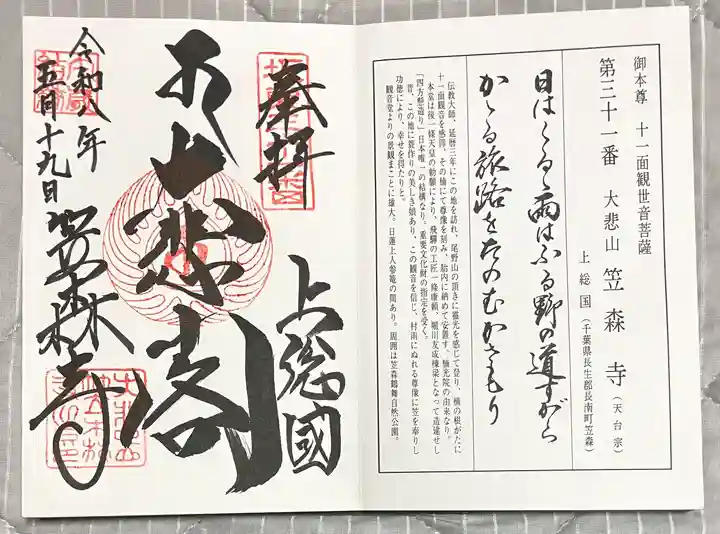 御本尊 十一面観世音菩薩
第三十一番 大悲山 笠森寺(天台宗)
上総国(千葉県長生郡長南町笠森)
日はくるゝ雨はふる野の道すがら
かゝる旅路をたのむかさもり
伝教大師、延暦三年にこの地を訪れ、尾野山の頂きに霊光を感じて登り、楠の根がたに
十一面観音を感得、その楠にて尊像を刻み、胎内に納めて安置す。楠光院の由来なり。
本堂は後一條天皇の勅願により、飛騨の工匠一條康頼、堀川友成棟梁となって造進せし
「四方懸造り」日本唯一の結構なり。重要文化財の指定を受く。
昔、この地に蓑作りの美しき娘あり、この観音を信じ、村雨にぬれる尊像に笠を奉りし
功徳により、幸せを得たりと。
観音堂よりの景観まことに雄大。日蓮上人参篭の間あり。周囲は笠森鶴舞自然公園。
奉拝
上總國
大悲閣
令和八年
五月十九日
笠森寺